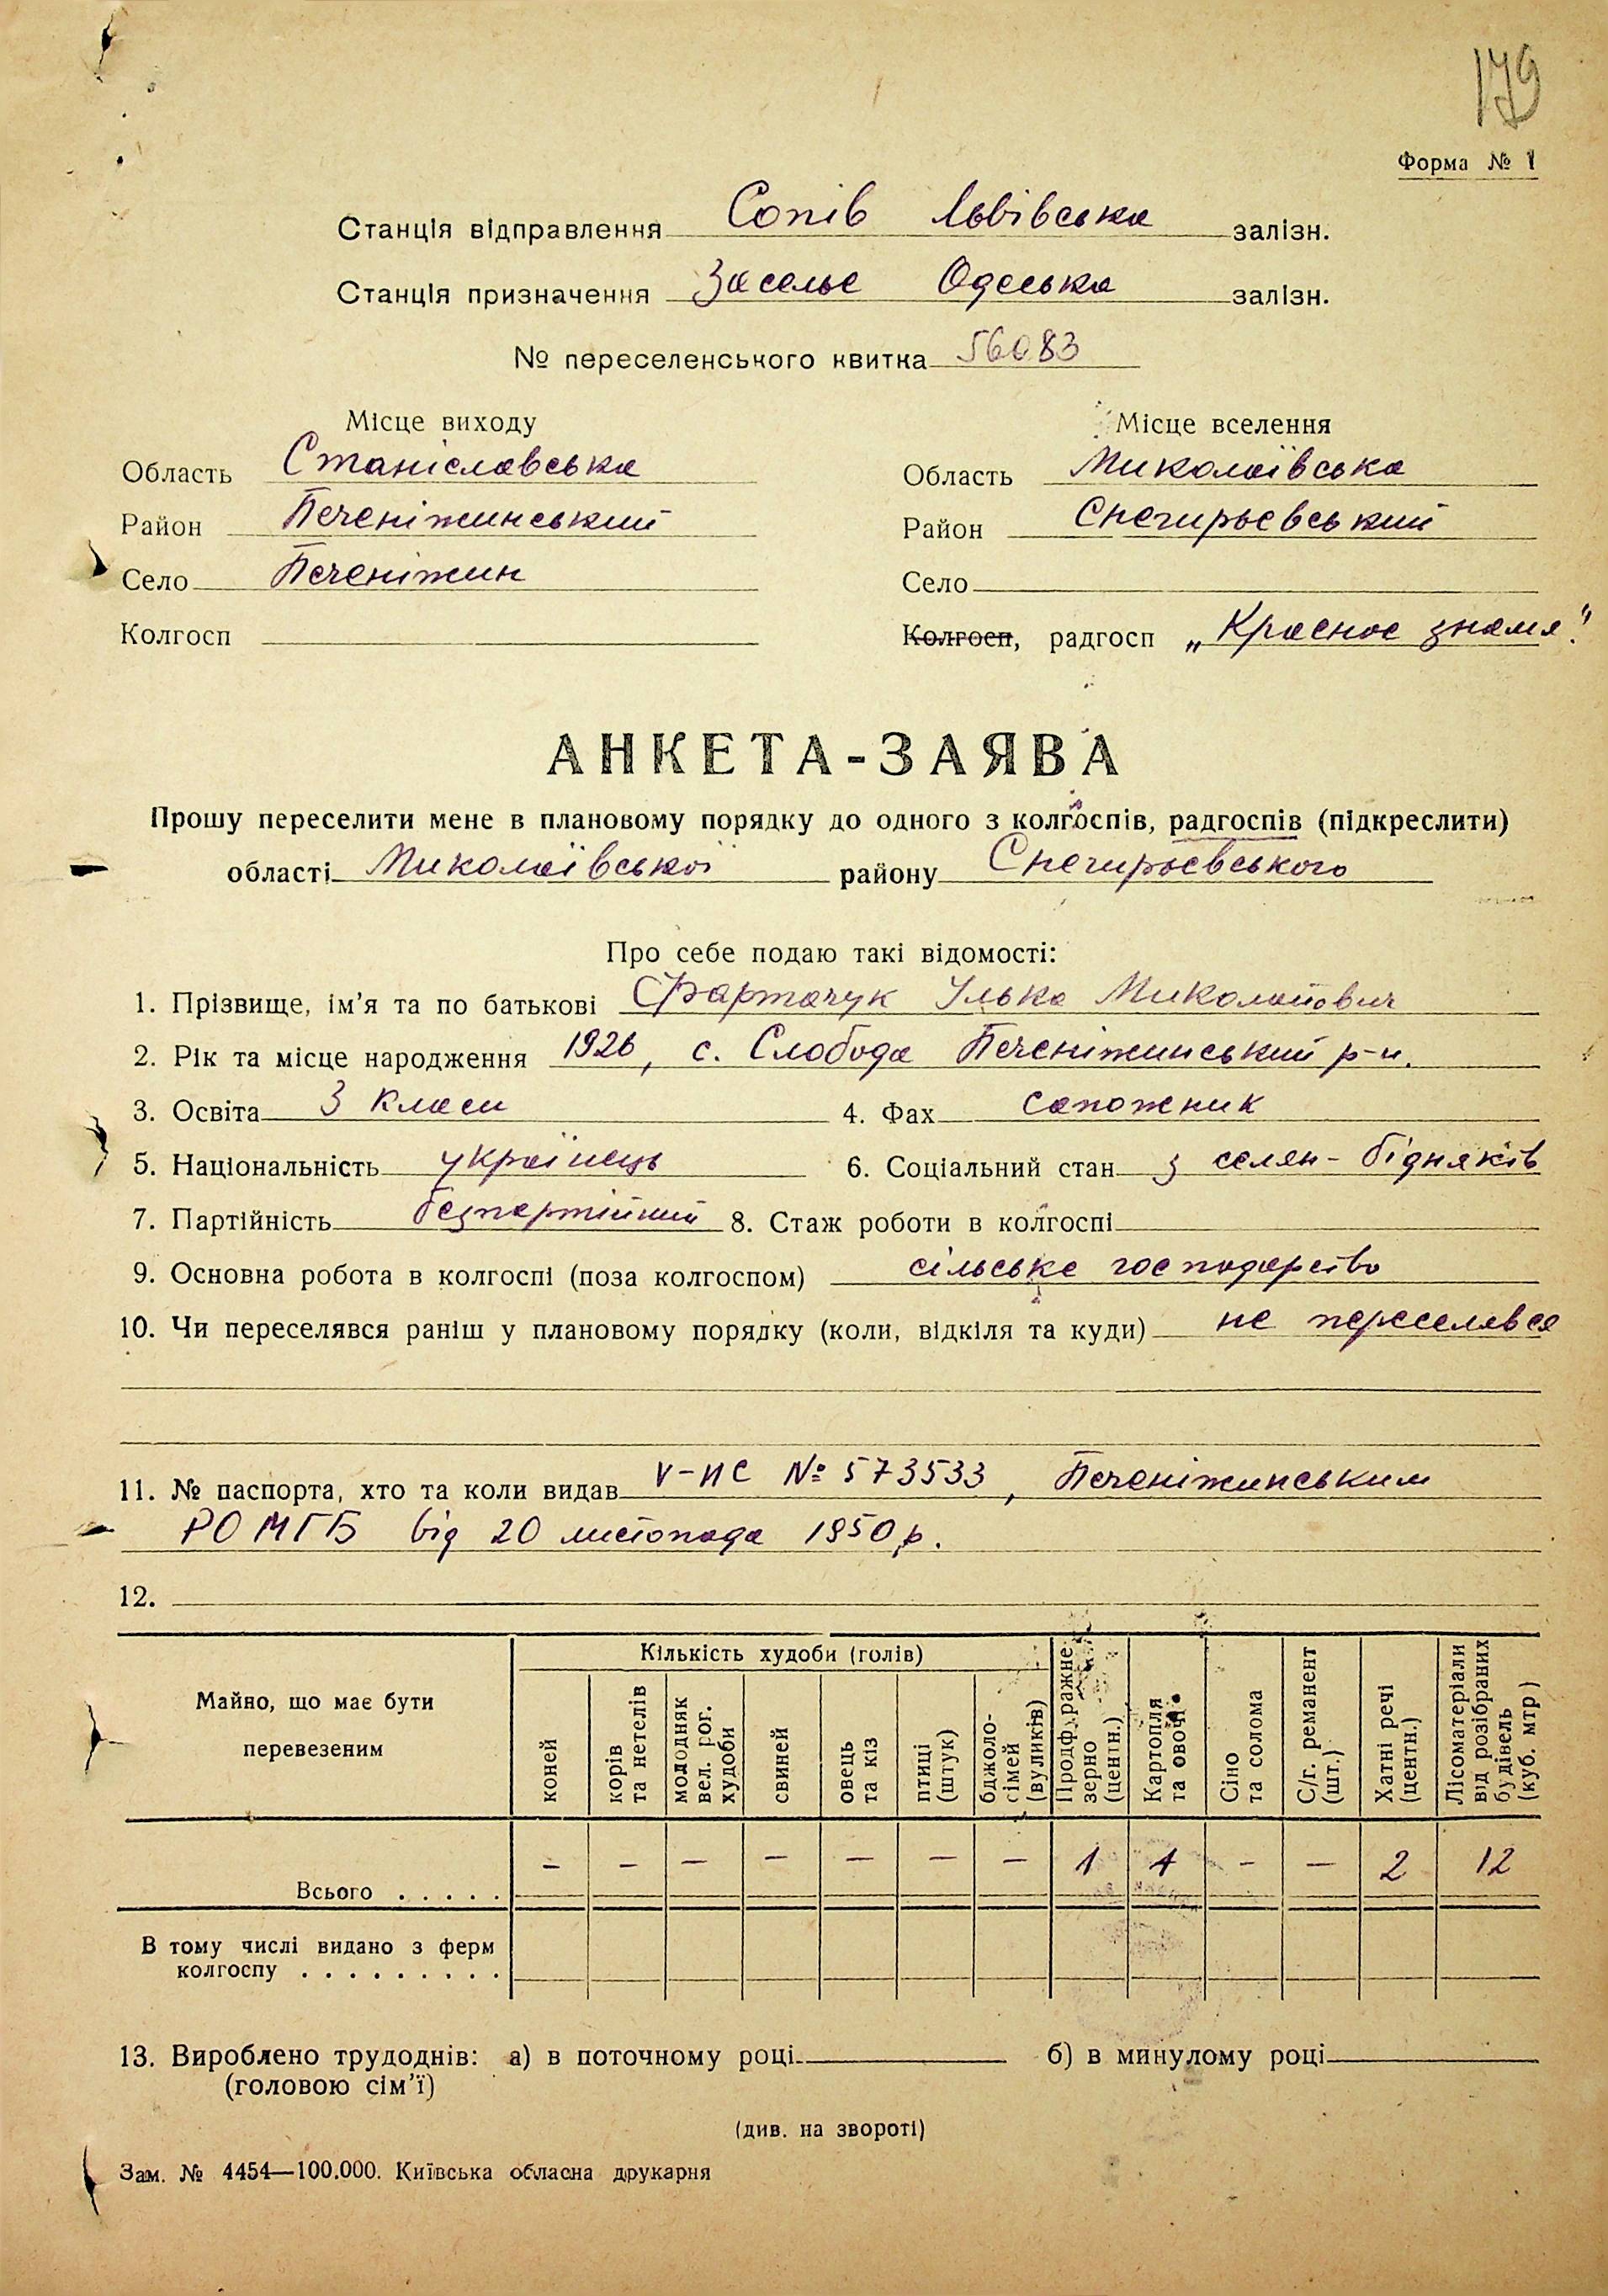 179
Форма № 1
Станція відправлення Сопів Львівська залізн.
Станція призначення Заселье Одеська залізн.
№ переселенського квитка 56083
Місце виходу
Місце вселення
Область Станіславська
Область Миколаївська
Район Печеніжинський
Район Снегирьєвський
Село Печеніжин
Село
Колгосп
Колгосп, радгосп „Красное знамя."
АНКЕТА-ЗАЯВА
Прошу переселити мене в плановому порядку до одного з колгоспів, радгоспів (підкреслити)
області Миколаївської району Снегирьєвського
Про себе подаю такі відомості:
1. Прізвище, ім'я та по батькові Фартачук Улько Миколайович
2. Рік та місце народження 1926, с. Слобода Печеніжинський р-н.
3. Освіта 3 класи 4. Фах сапожник
5. Національність українець 6. Соціальний стан з селян-бідняків
7. Партійність безпартійний 8. Стаж роботи в колгоспі
9. Основна робота в колгоспі (поза колгоспом) сільське господарство
10. Чи переселявся раніш у плановому порядку (коли, відкіля та куди) не переселявся
11. № паспорта, хто та коли видав V-ИС № 573533, Печеніжинським
РО МГБ від 20 листопада 1950 р.
12.
Майно, що має бути перевезеним
Кількість худоби (голів)
коней
корів та нетелів
молодняк вел. рог. худоби
свиней
овець та кіз
птиці (штук)
бджоло-сімей (вуликів)
Продф.ражне зерно (центн.)
Картопля та овочі
Сіно та солома
С/г. реманент (шт.)
Хатні речі (центн.)
Лісоматеріали від розібраних будівель (куб. мтр)
Всього . . . . . – – – – – – – 1 1 – – 2 12
В тому числі видано з ферм
колгоспу . . . . . . . . .
13. Вироблено трудоднів: а) в поточному році б) в минулому році
(головою сім'ї)
(див. на звороті)
Зам. № 4454—100.000. Київська обласна друкарня